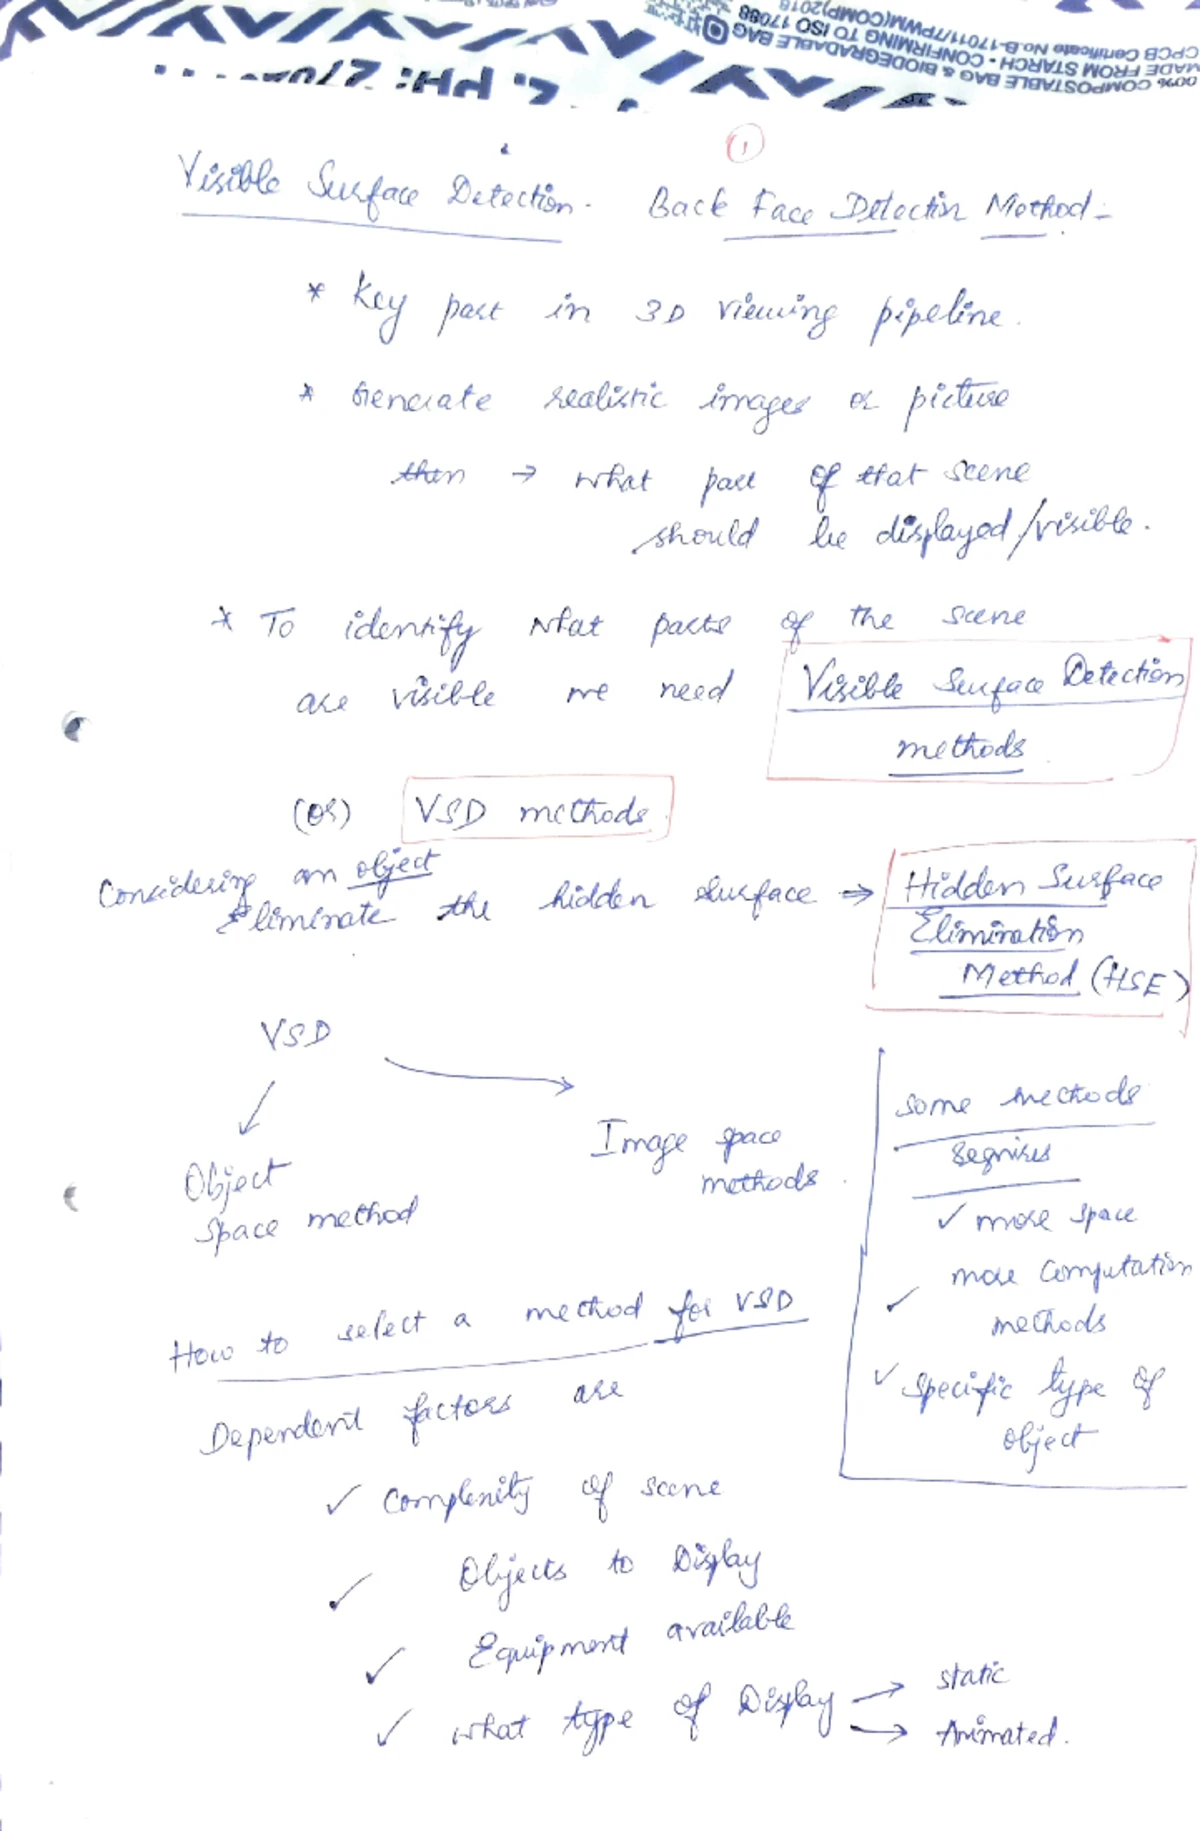 00% COMPOSTABLE BAG & BIODEGRADABLE BAG
MADE FROM STARCH • CONFIRMING TO ISO 17088
CPCB Certificate No.B-17011/7/PWM(COMP)2018
PH: 270
1
Visible Surface Detection. Back Face Detectin Method -
* Key part in 3D viewing pipeline.
* Generate realistic images or picture
then → what part of that scene
should be displayed/visible.
* To identify what parts of the scene
are visible we need Visible Surface Detection
methods
(or) VSD methods
Considering an object
Eliminate the hidden surface ⇒ Hidden Surface
Elimination
Method (HSE)
VSD
Object
space method
Image space
methods.
some methods
requires
✓ more space
✓ more computation
methods
✓ specific type of
object
How to select a method for VSD
Dependent factors are
✓ Complexity of scene
✓ Objects to Display
✓ Equipment available
✓ what type of Display → static
→ Animated.